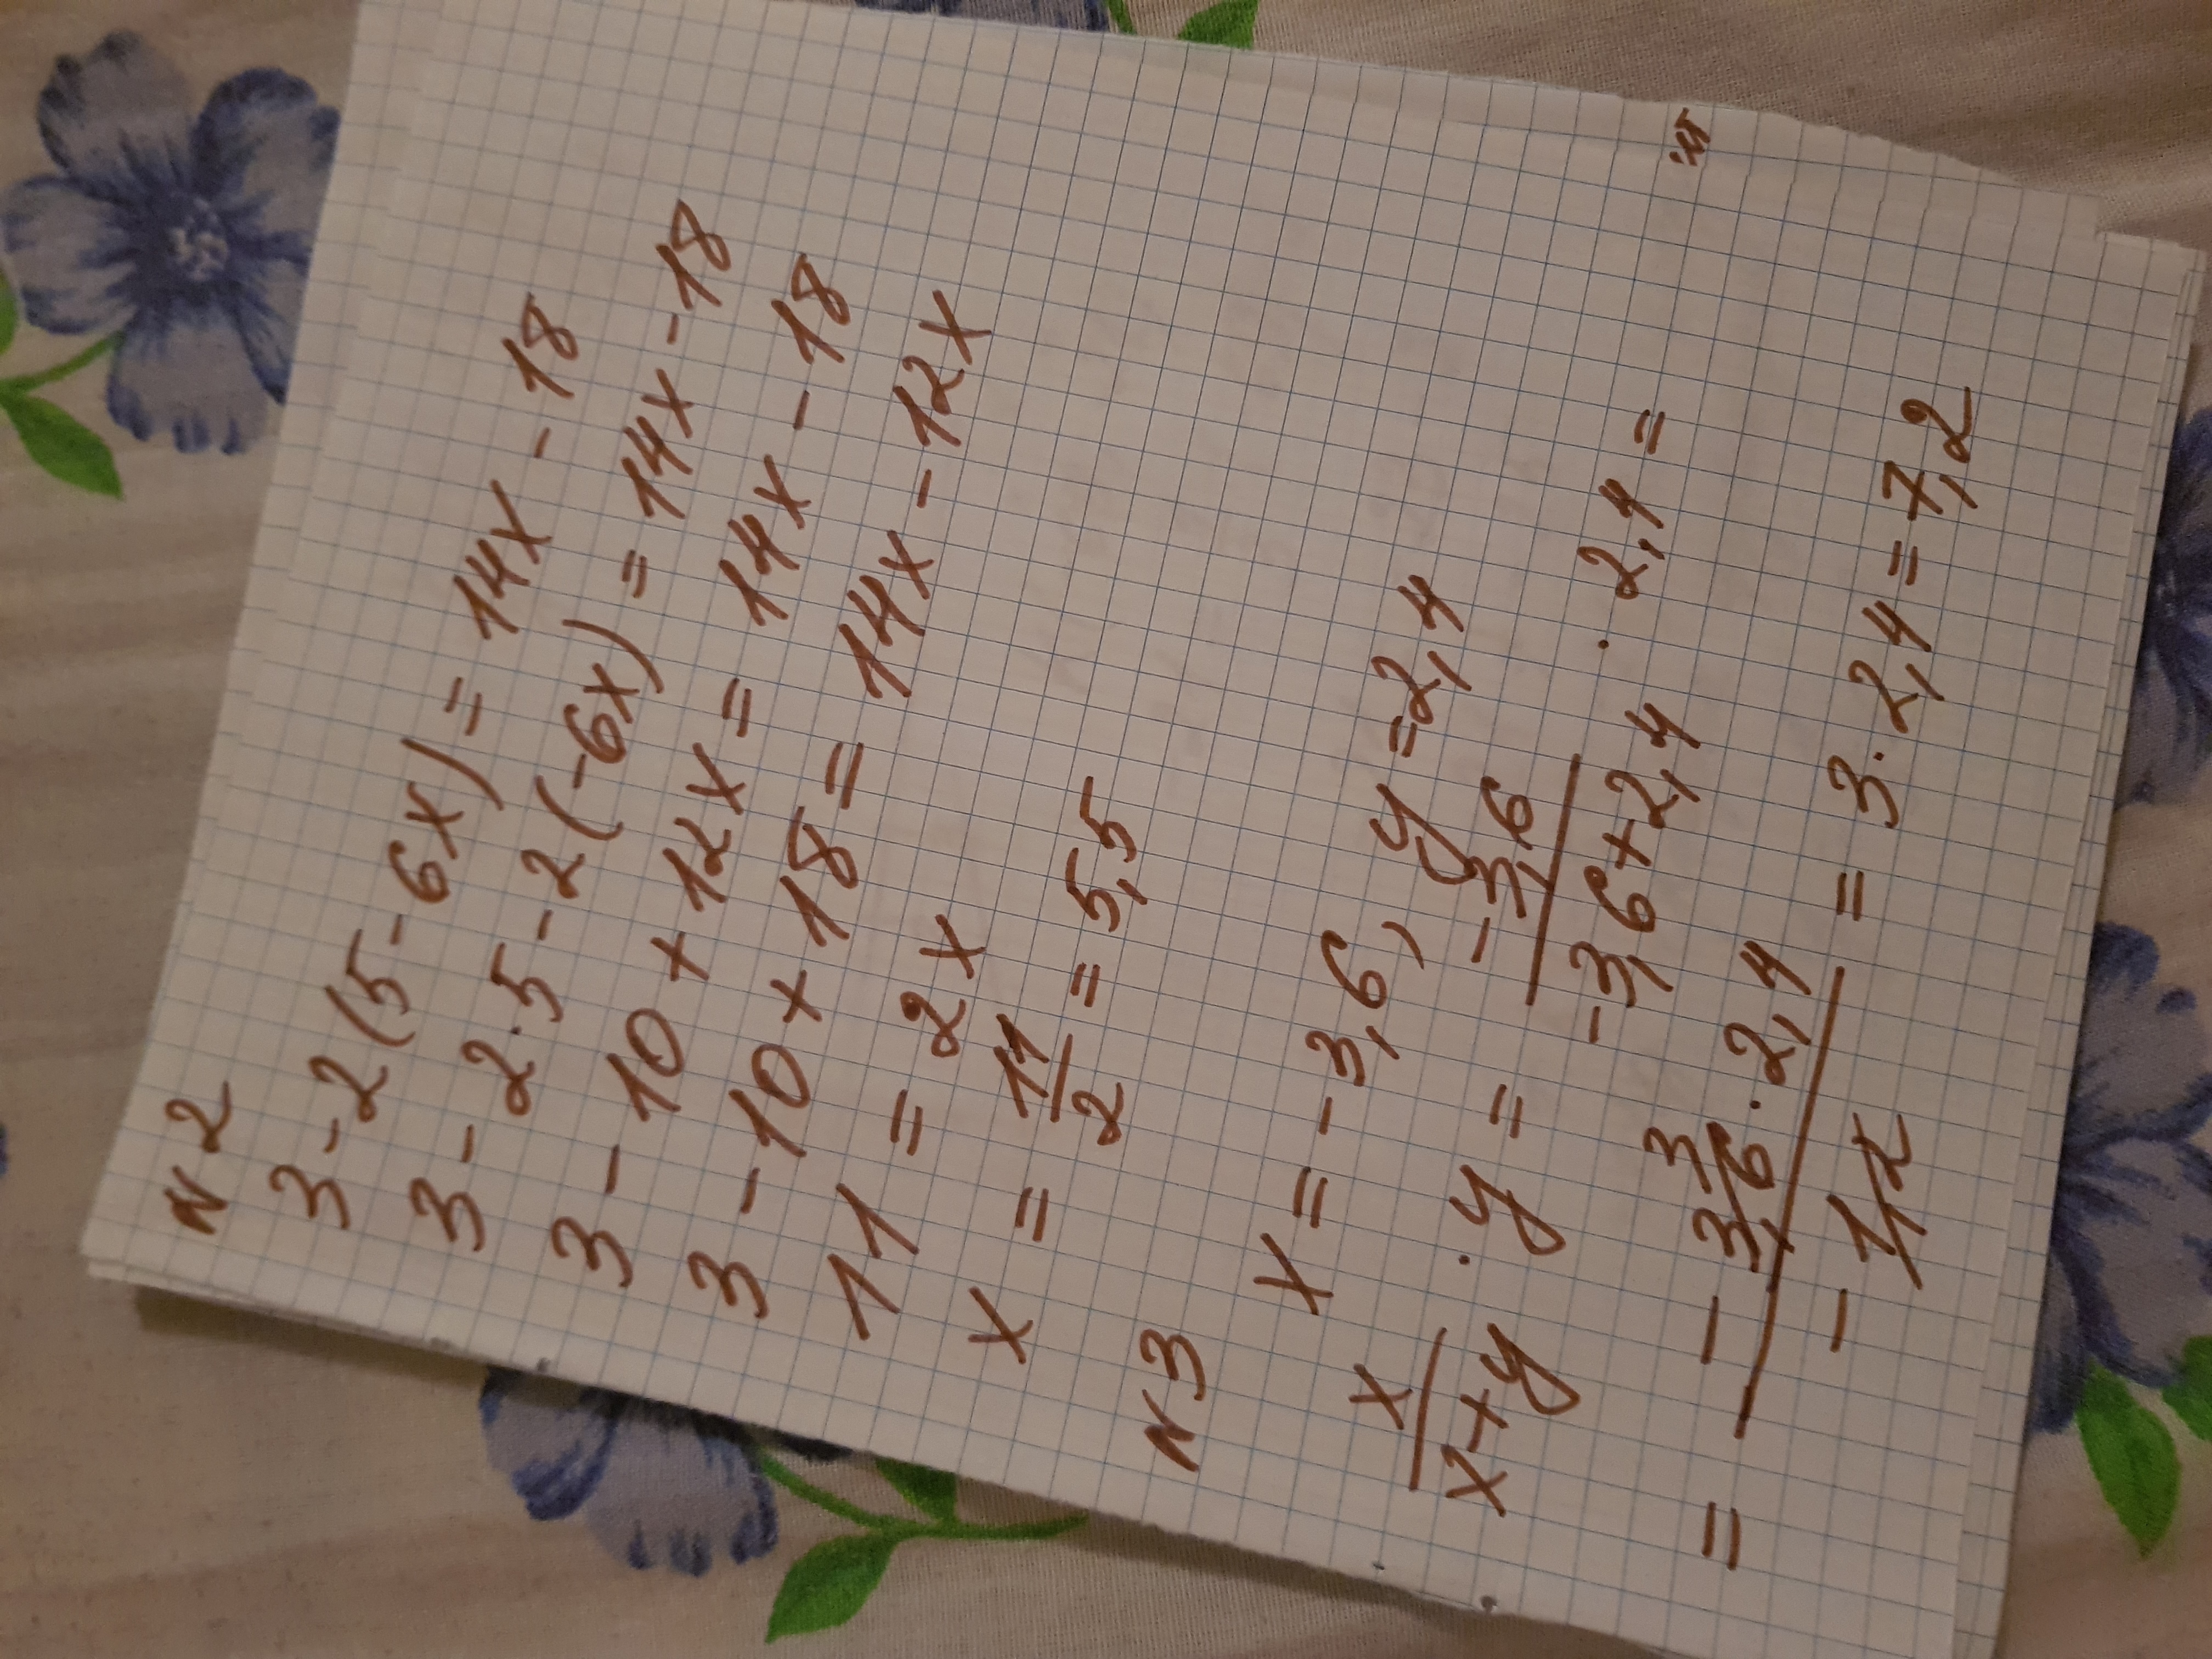 N 2
3 - 2 (5 - 6x) = 14x - 18
3 - 2·5 - 2 (-6x) = 14x - 18
3 - 10 + 12x = 14x - 18
3 - 10 + 18 = 14x - 12x
11 = 2x
x = 11/2 = 5,5
N 3
x = - 3,6, y = 2,4
x/(x+y) · y = -3,6/(-3,6+2,4) · 2,4 =
= - 3,6 3 · 2,4/- 1,2 = 3 · 2,4 = 7,2